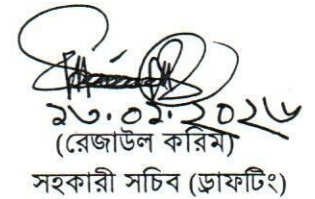 ২৩.০২.২০২৬
(রেজাউল করিম)
সহকারী সচিব (ড্রাফটিং)